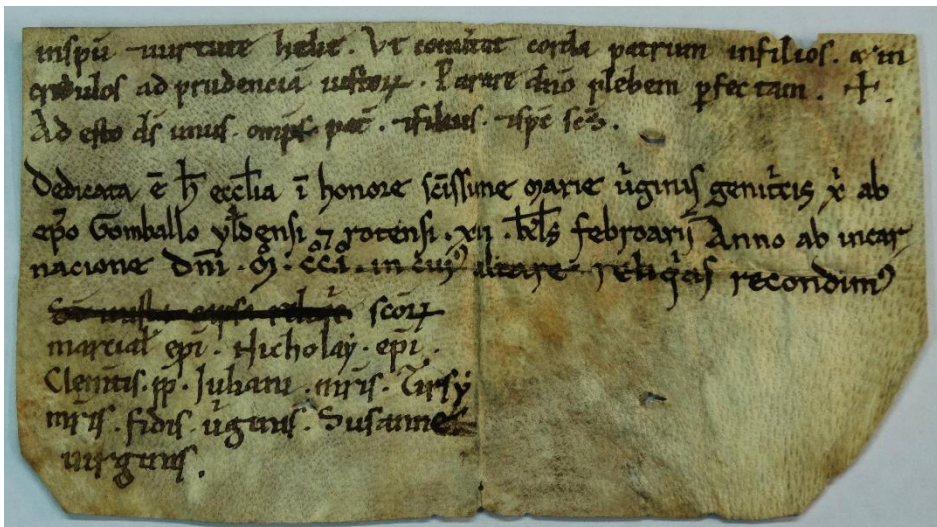 inspū uirtute helie. Ut conuertat corda patrum infilios. & in
credulos ad prudencia iustorꝝ. Parare dn̄o plebem ꝑfectam. ✝.
Ad esto d̄s unus. omp̄s pat̄. &filius. &sp̄c sc̄s.
Dedicata ē h̄ eccl̄ia ī honore sc̄issime marie ūginis genit̄cis x̄ ab
ep̄o Gomballo yl̄densi ⁊ rotensi. xii. kl̄s febroarii Anno ab incar
nacione Dn̄i. M̊. C̊C̊. I̊. in cuiꝰ altare reliq̄as recondimꝰ
scōrꝝ
marcial̄ ep̄i. Nicholay. ep̄i.
Clem̄tis. p̄p. Juliani. mr̄is. Tirsy
mr̄is. fidis. ūginis. Susanne
uirginis.